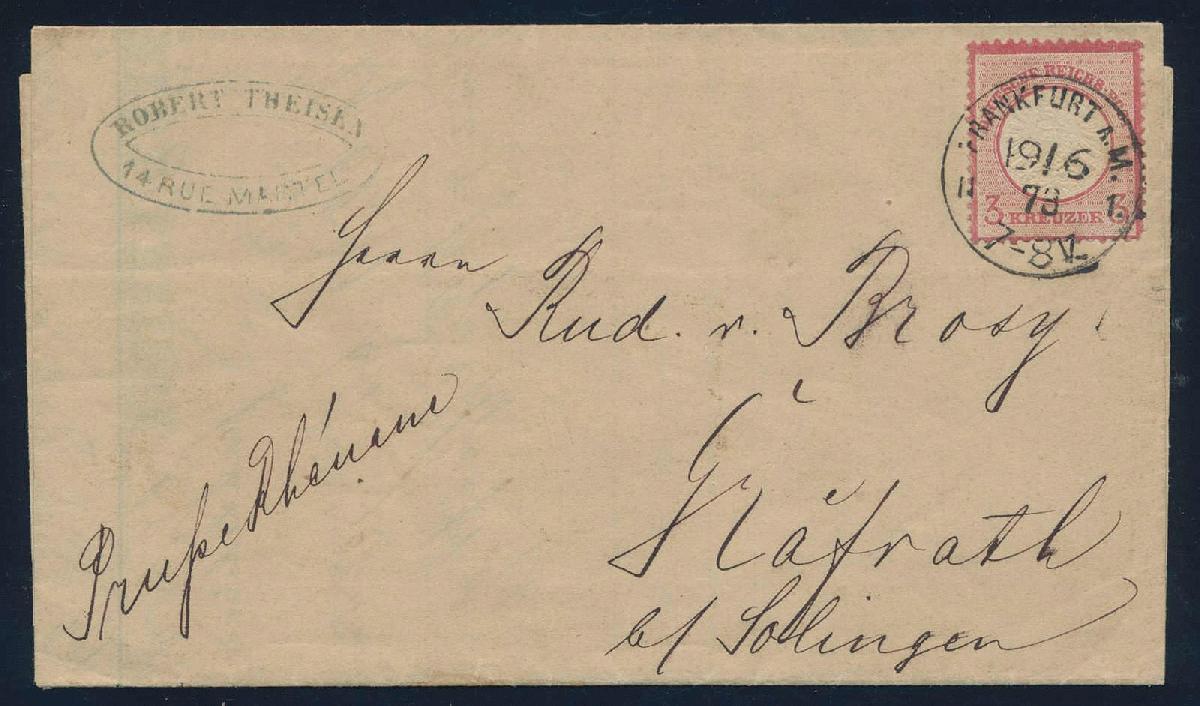 ROBERT THEISEN
14 RUE MARTEL
DEUTSCHE REICHS-POST
FRANKFURT A. M.
19 6
73
1.
7-8 V.
3 KREUZER 3
Herrn
Rud. v. Brosy
Prusse Rhénane
Gräfrath
b/ Solingen